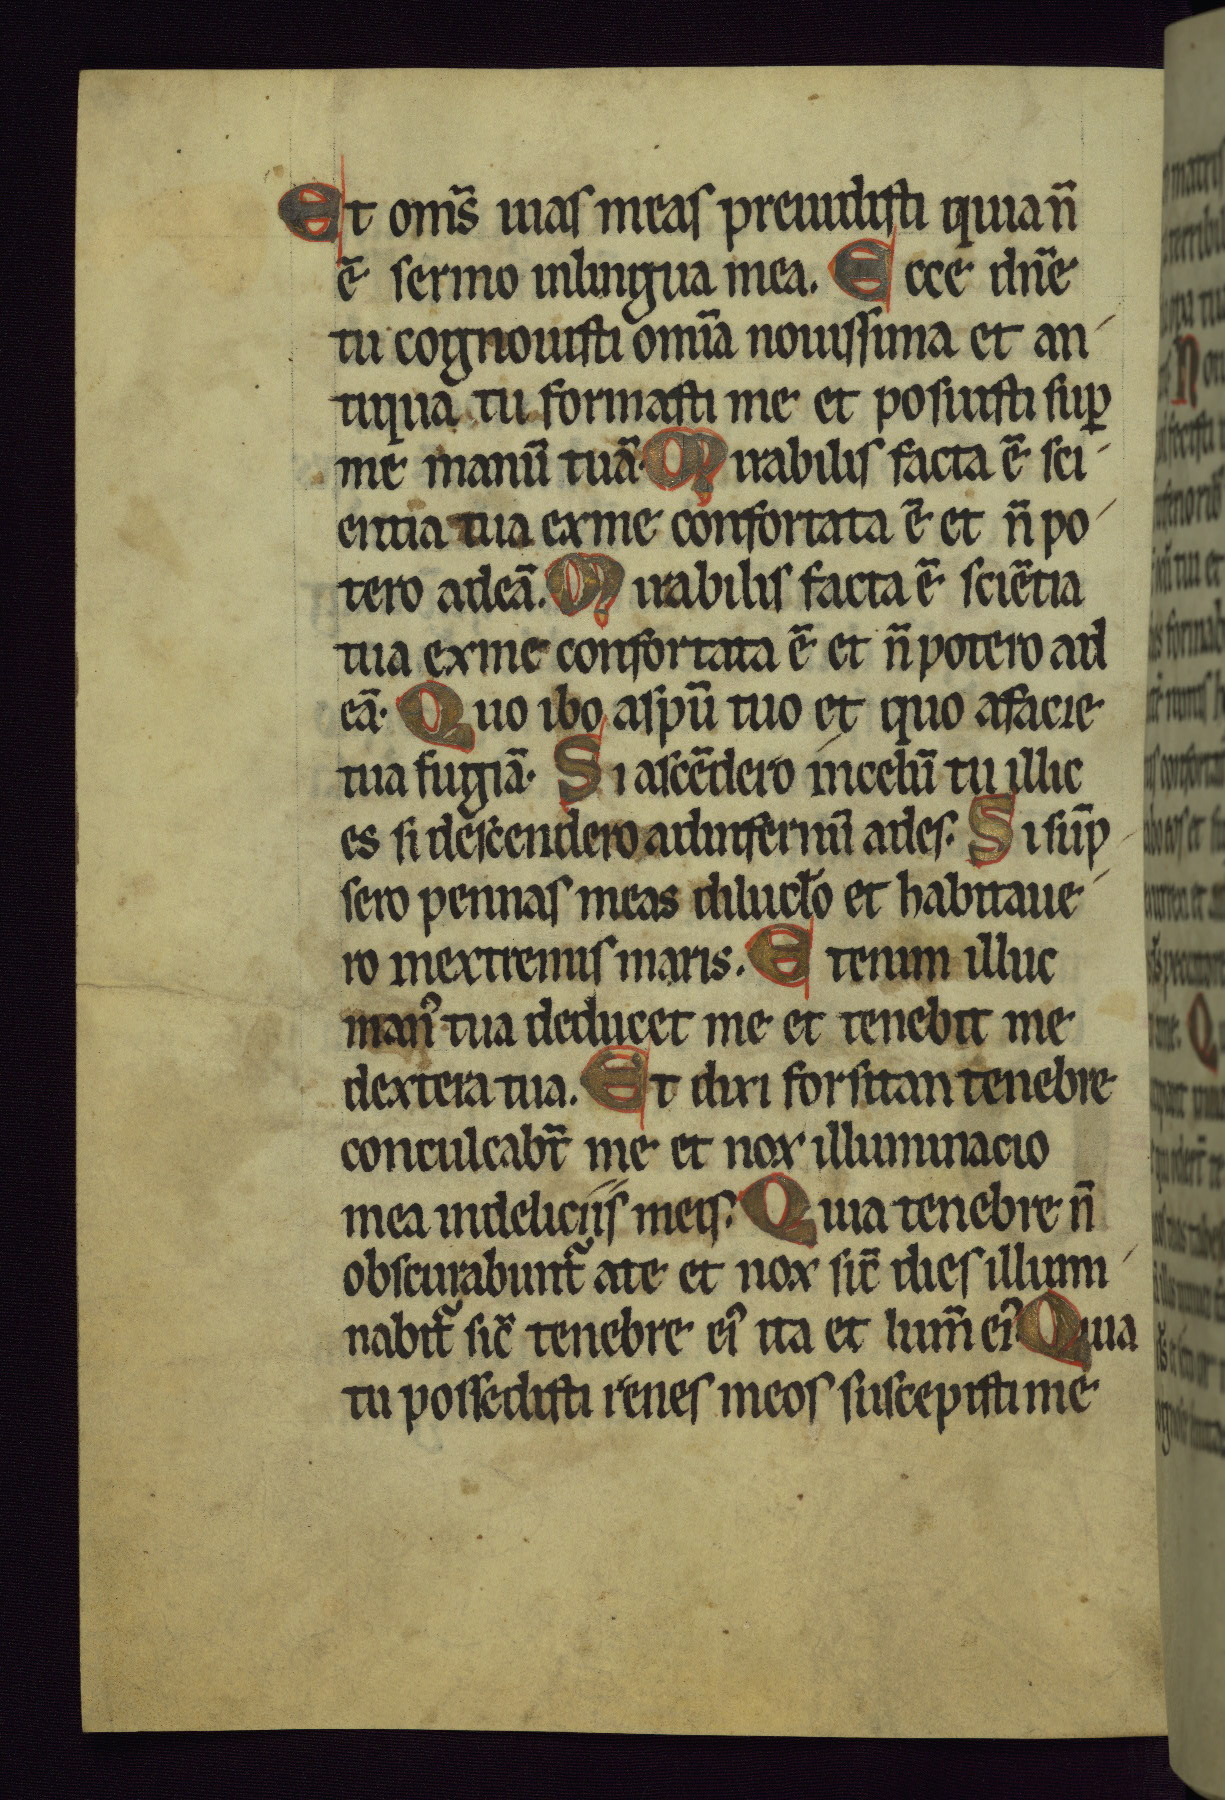 Et om̅s uias meas preuidisti quia n̅
e̅ sermo inlingua mea. Ecce dn̅e
tu cognouisti om̅ia nouissima et an
tiqua tu formasti me et posuisti sup̲
me manu̅ tua̅. Mirabilis facta e̅ sci
entia tua exme confortata e̅ et n̅ po
tero adea̅. Mirabilis facta e̅ scie̅tia
tua exme confortata e̅ et n̅ potero ad
ea̅. Quo ibo aspu̅ tuo et quo afacie
tua fugia̅. Si asce̅dero incelu̅ tu illic
es si descendero adinfernu̅ ades. Si su̅p
sero pennas meas dilucl̅o et habitaue
ro inextremis maris. Etenim illuc
man᾽ tua deducet me et tenebit me
dextera tua. Et dixi forsitan tenebre
conculcab̅t me et nox illuminacio
mea indeliciis meis. Quia tenebre n̅
obscurabunt᷑ ate et nox sic̅ dies illumi
nabit᷑ sic̅ tenebre ei᾽ ita et lum̅ ei᾽ Quia
tu possedisti renes meos suscepisti me